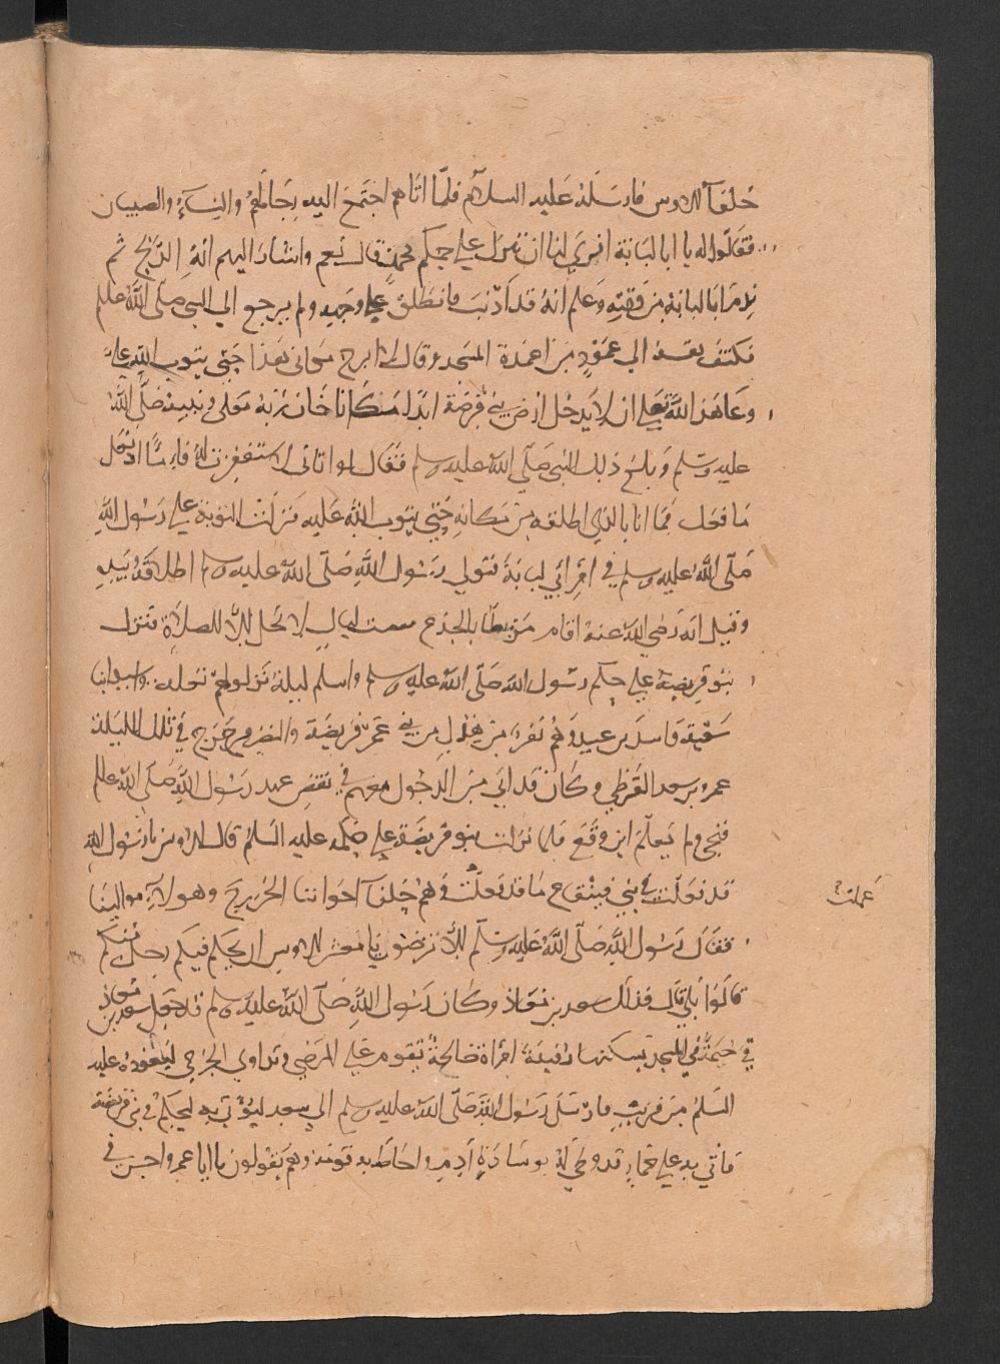 حلفآ للاوس فارسله عليه السلام فلما اتاهم اجتمع اليه رجالهم والنسآء والصبيان
فقالوا له يا ابا لبانة اتري لنا ان ننزل علي حكم محمد قال نعم واشار اليهم انه الذبح ثم
ندم ابا لبانة من وقته وعلم انه قد اذنب فانطلق علي وجهه ولم يرجع الي النبي صلى الله عليه
فكتف نفسه الى عمود من اعمدة المسجد وقال لا ابرح مكاني هذا حتي يتوب الله علي
وعاهد الله تعلي ان لا يدخل ارض بني قريضة ابدا مكانا خان ربه تعلى ونبيه صلى الله
عليه وسلم وبلغ ذلك النبي صلى الله عليه وسلم فقال لو اتاني لاستغفرت له فاما اذ فعل
ما فعل فما انا بالذي اطلقه من مكانه حتي يتوب الله عليه فنزلت التوبة علي رسول الله
صلى الله عليه وسلم في امر ابي لبانة فتولي رسول الله صلى الله عليه وسلم اطلاقه بيده
وقيل انه رضي الله عنه اقام مرتبطا بالجذع ست ليال لا يحل الا للصلاة فنزلت
بنو قريضة علي حكم رسول الله صلى الله عليه وسلم واسلم ليلة نزولهم
سعية واسد بن عبيد وهم نفر من هذيل من بني عم قريضة والنضير وخرج في تلك الليلة
عمرو بن سعد القرظي وكان قد ابي من الدخول معهم في نقض عهد رسول الله صلى الله عليه
فنجي ولم يعلم اين وقع فلما نزلت بنو قريضة علي حكمه عليه السلم قال الاوس يا رسول الله
قد فعلت في بني قينقاع ما قد فعلت وهم حلفآ اخواننا الخزرج وهولآء موالينا
عملت
فقال رسول الله صلى الله عليه وسلم الا ترضون يا معشر الاوس ان يحكم فيكم رجل منكم
قالوا بلي قال فذلك سعد بن معاذ وكان رسول الله صلى الله عليه وسلم قد جعل سعد بن معاذ
في خيمة في المسجد تسكنها رفيدة امراة صالحة تقوم علي المرضي وتداوي الجرحي ليعوده عليه
السلم من قريب فارسل رسول الله صلى الله عليه وسلم الي سعد ليؤتي به ليحكم في بني قريضة
فاتي به علي حمار قد وطي له بوسادة ادم واحاط به قومه وهم يقولون يا ابا عمرو احسن في